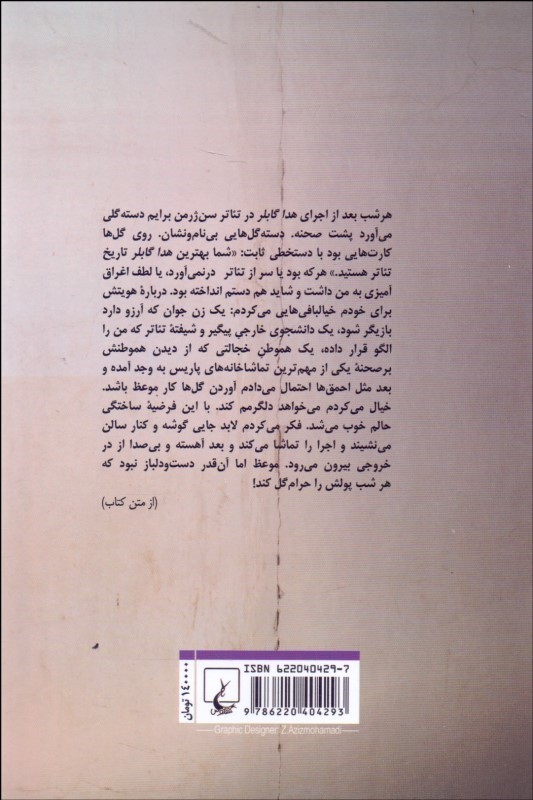 هر شب بعد از اجرای هدا گابلر در تئاتر سن‌ژرمن برایم دسته‌گلی
می‌آورد پشت صحنه. دسته‌گل‌هایی بی‌نام‌ونشان. روی گل‌ها
کارت‌هایی بود با دستخطی ثابت: «شما بهترین هدا گابلر تاریخ
تئاتر هستید.» هرکه بود یا سر از تئاتر درنمی‌آورد، یا لطف اغراق
آمیزی به من داشت و شاید هم دستم انداخته بود. دربارهٔ هویتش
برای خودم خیالبافی‌هایی می‌کردم: یک زن جوان که آرزو دارد
بازیگر شود، یک دانشجوی خارجیِ پیگیر و شیفتهٔ تئاتر که من را
الگو قرار داده، یک هموطنِ خجالتی که از دیدن هموطنش
برصحنهٔ یکی از مهم‌ترین تماشاخانه‌های پاریس به وجد آمده و
بعد مثل احمق‌ها احتمال می‌دادم آوردن گل‌ها کار موعظ باشد.
خیال می‌کردم می‌خواهد دلگرمم کند. با این فرضیهٔ ساختگی
حالم خوب می‌شد. فکر می‌کردم لابد جایی گوشه و کنار سالن
می‌نشیند و اجرا را تماشا می‌کند و بعد آهسته و بی‌صدا از در
خروجی بیرون می‌رود. موعظ اما آن‌قدر دست‌ودلباز نبود که
هر شب پولش را حرام گل کند!
(از متن کتاب)
ISBN 622040429-7
9 786220 404293
۱۴۰۰۰۰ تومان
Graphic Designer: Z.Azizmohamadi